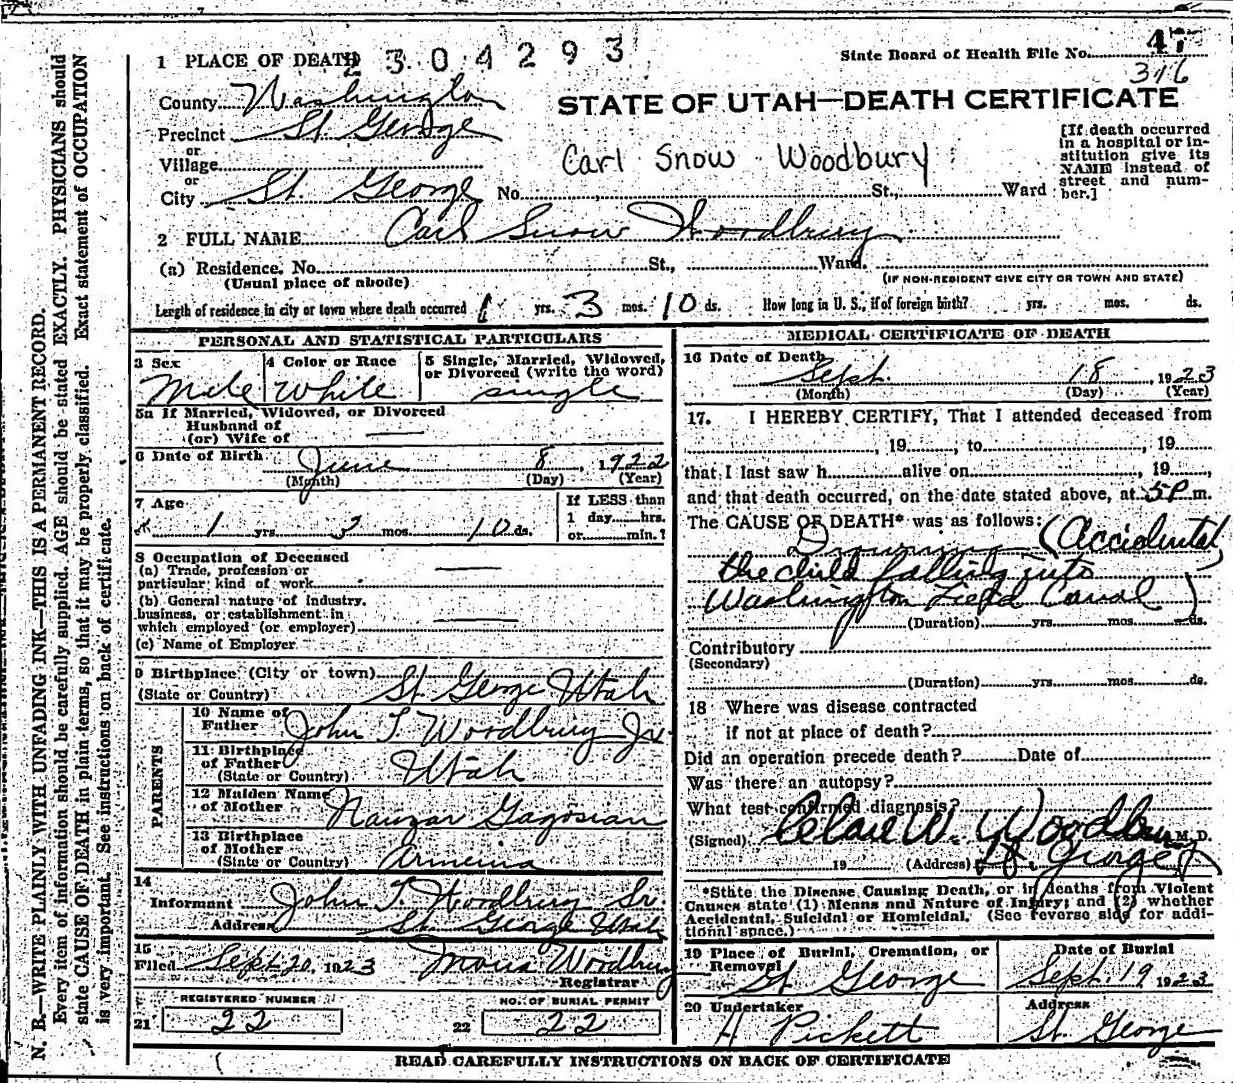 1 PLACE OF DEATH
2304293
State Board of Health File No. 47
316
County Washington
STATE OF UTAH—DEATH CERTIFICATE
Precinct St. George
or
Village
or
City St. George No. St., Ward
Carl Snow Woodbury
[If death occurred
in a hospital or in-
stitution give its
NAME instead of
street and num-
ber.]
2 FULL NAME Carl Snow Woodbury
(a) Residence. No. St., Ward.
(Usual place of abode)
(IF NON-RESIDENT GIVE CITY OR TOWN AND STATE)
Length of residence in city or town where death occurred 1 yrs. 3 mos. 10 ds. How long in U. S., if of foreign birth? yrs. mos. ds.
PERSONAL AND STATISTICAL PARTICULARS
3 Sex
Male
4 Color or Race
White
5 Single, Married, Widowed,
or Divorced (write the word)
single
5a If Married, Widowed, or Divorced
Husband of
(or) Wife of
6 Date of Birth June 8, 1922
(Month) (Day) (Year)
7 Age
1 yrs. 3 mos. 10 ds.
If LESS than
1 day hrs.
or min.?
8 Occupation of Deceased
(a) Trade, profession or
particular kind of work
(b) General nature of Industry,
business, or establishment in
which employed (or employer)
(c) Name of Employer
9 Birthplace (City or town)
(State or Country) St George Utah
PARENTS
10 Name of
Father John T. Woodbury Jr
11 Birthplace
of Father
(State or Country) Utah
12 Maiden Name
of Mother Gagosian
13 Birthplace
of Mother
(State or Country) Armenia
14
Informant John T. Woodbury Sr.
Address St. George Utah
15
Filed Sept 20, 1923 Woodbury
Registrar
REGISTERED NUMBER
21 22
NO. OF BURIAL PERMIT
22 22
MEDICAL CERTIFICATE OF DEATH
16 Date of Death
Sept. 18, 1923
(Month) (Day) (Year)
17. I HEREBY CERTIFY, That I attended deceased from
, 19 , to , 19
that I last saw h alive on , 19 ,
and that death occurred, on the date stated above, at 5P m.
The CAUSE OF DEATH* was as follows:
Drowning (Accidental,
the child falling into
Washington Field Canal)
(Duration) yrs. mos. ds.
Contributory
(Secondary)
(Duration) yrs. mos. ds.
18 Where was disease contracted
if not at place of death?
Did an operation precede death? Date of
Was there an autopsy?
What test confirmed diagnosis?
(Signed) Clare W. Woodbury M. D.
19 (Address) St. George
*State the Disease Causing Death, or in deaths from Violent
Causes state (1) Means and Nature of Injury; and (2) whether
Accidental, Suicidal or Homicidal. (See reverse side for addi-
tional space.)
19 Place of Burial, Cremation, or
Removal
St George
Date of Burial
Sept. 19 1923
20 Undertaker
H Pickett
Address
St. George
READ CAREFULLY INSTRUCTIONS ON BACK OF CERTIFICATE
N. B.—WRITE PLAINLY WITH UNFADING INK—THIS IS A PERMANENT RECORD.
Every item of information should be carefully supplied. AGE should be stated EXACTLY. PHYSICIANS should
state CAUSE OF DEATH in plain terms, so that it may be properly classified. Exact statement of OCCUPATION
is very important. See instructions on back of certificate.